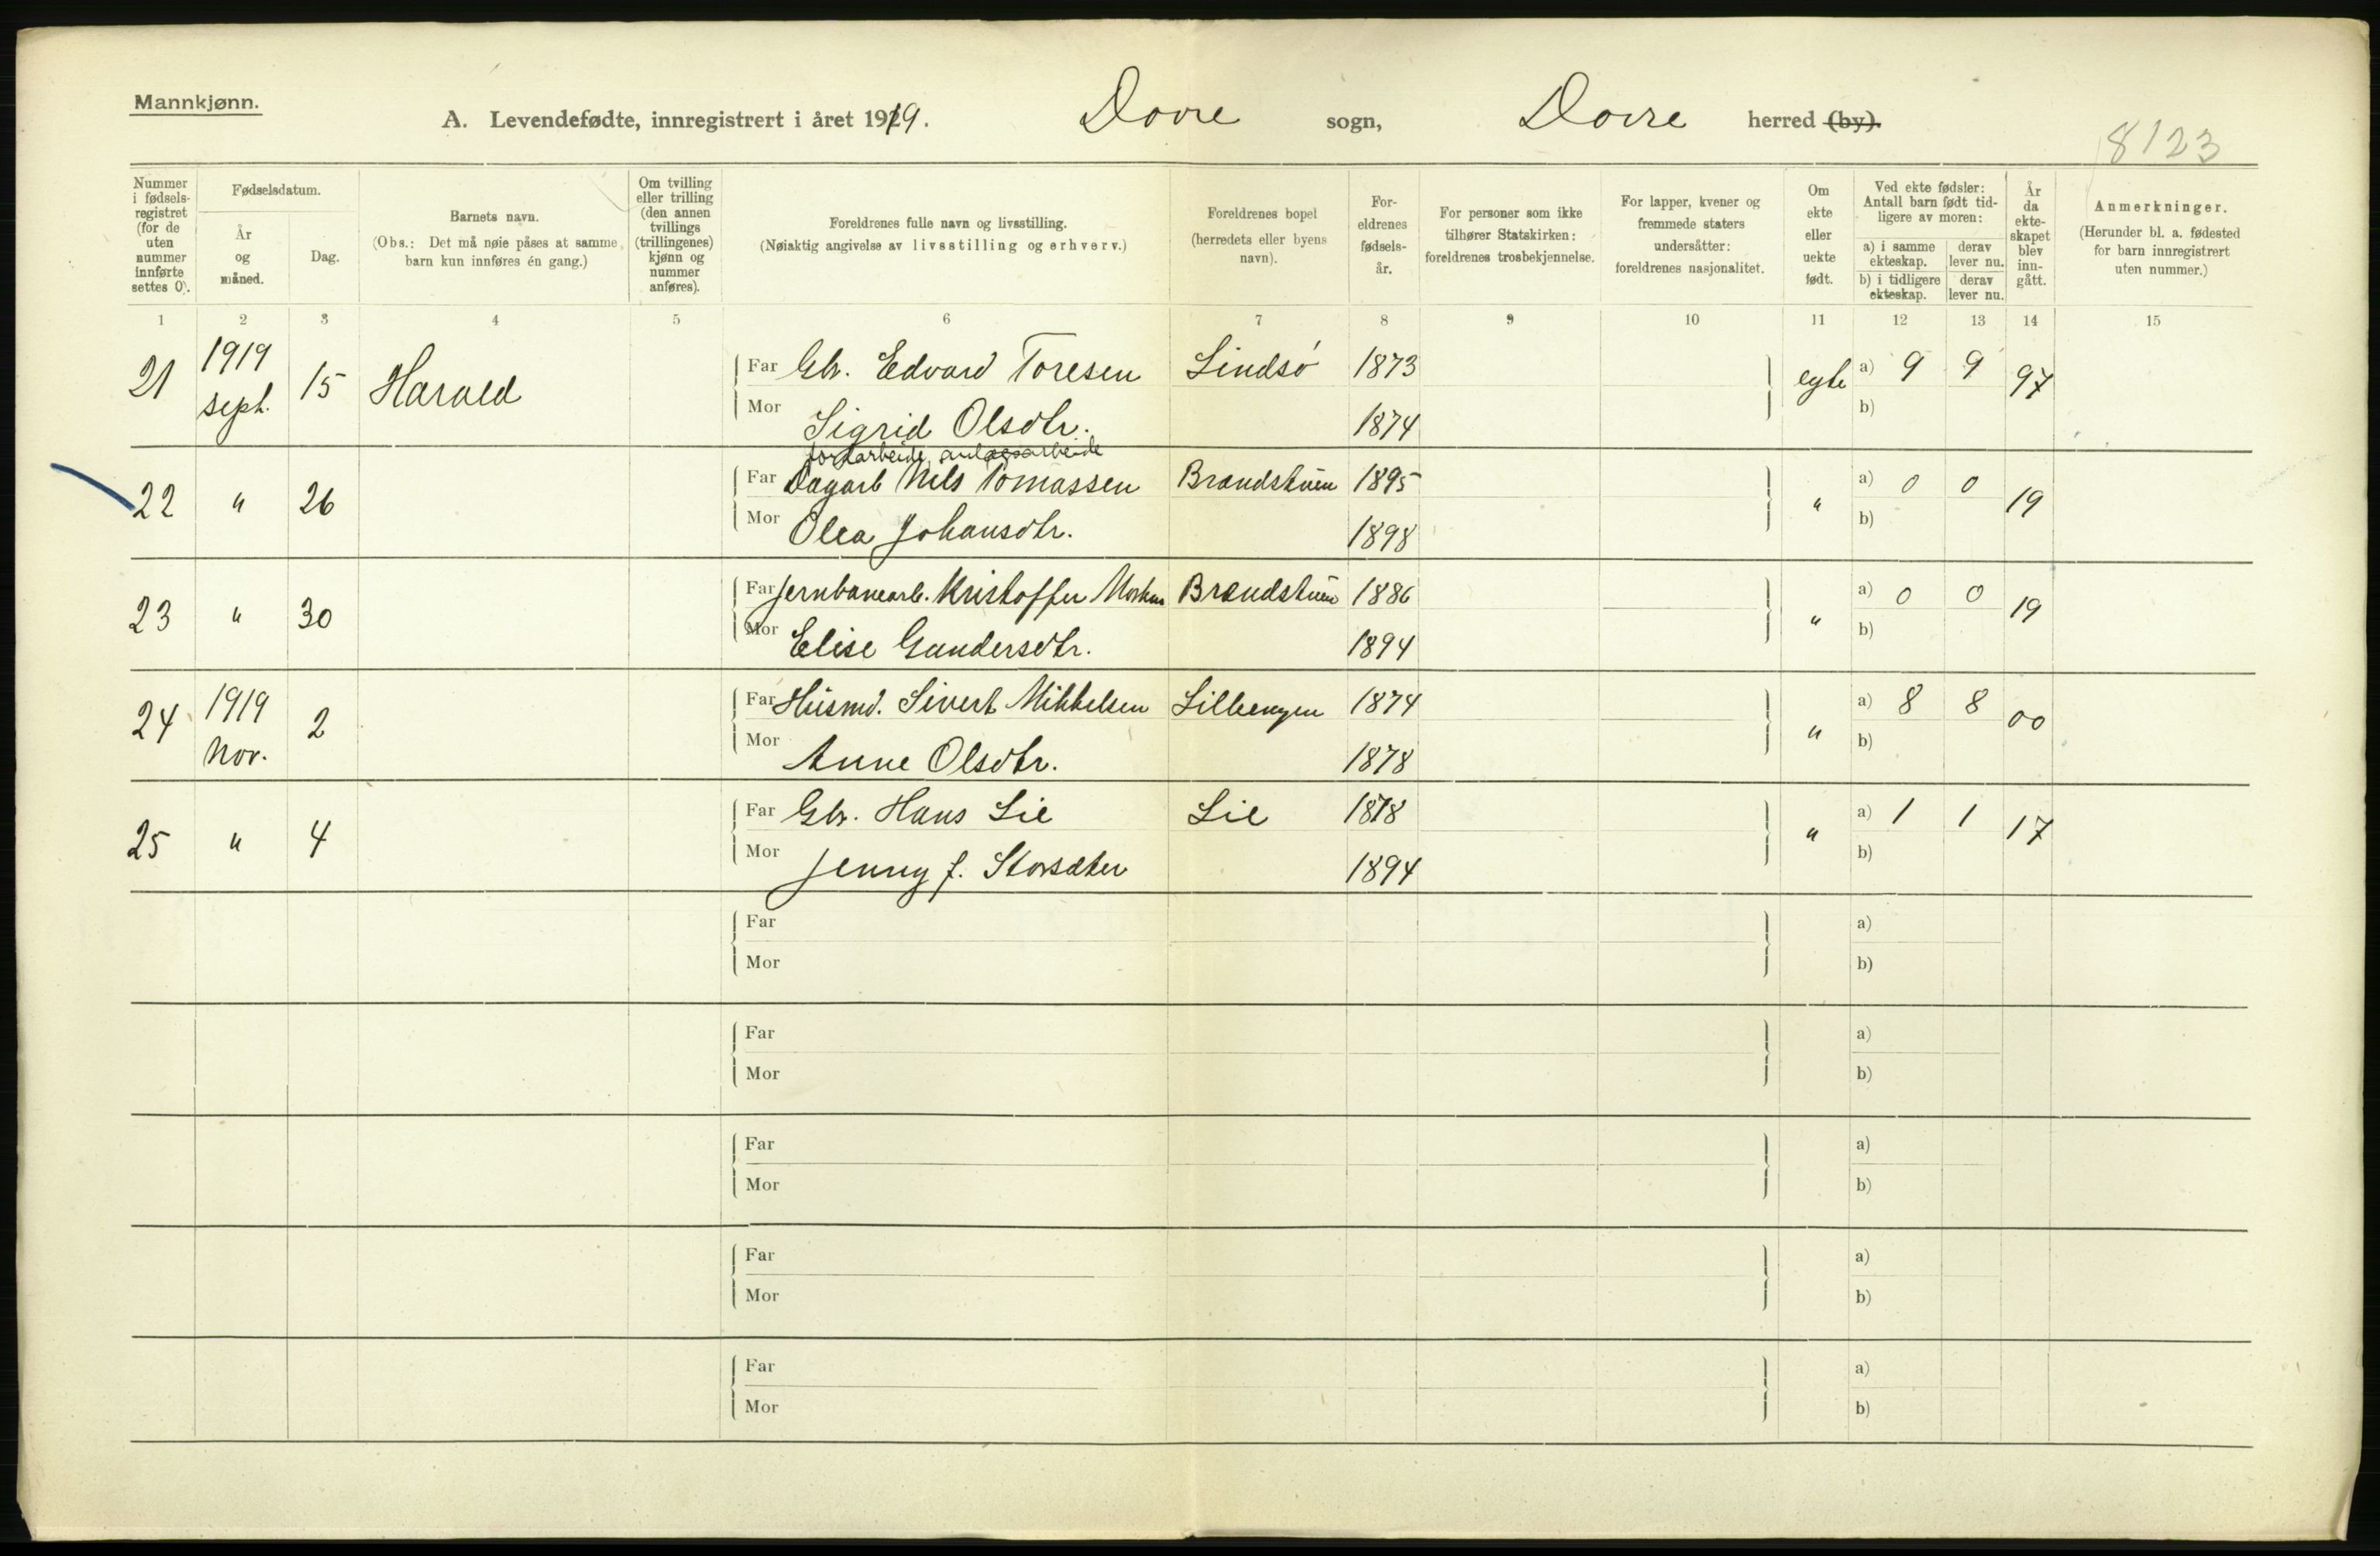 Mannkjønn.
A. Levendefødte, innregistrert i året 1919. Dovre sogn, Dovre herred (by).
8123
Nummer i fødsels-registret (for de uten nummer innførte settes 0).
Fødselsdatum.
År og måned.
Dag.
Barnets navn.
(Obs.: Det må nøie påses at samme barn kun innføres én gang.)
Om tvilling eller trilling (den annen tvillings (trillingenes) kjønn og nummer anføres).
Foreldrenes fulle navn og livsstilling.
(Nøiaktig angivelse av livsstilling og erhverv.)
Foreldrenes bopel (herredets eller byens navn).
For-eldrenes fødsels-år.
For personer som ikke tilhører Statskirken: foreldrenes trosbekjennelse.
For lapper, kvener og fremmede staters undersåtter: foreldrenes nasjonalitet.
Om ekte eller uekte født.
Ved ekte fødsler: Antall barn født tid-ligere av moren:
a) i samme ekteskap. derav lever nu.
b) i tidligere ekteskap. derav lever nu.
År da ekte-skapet blev inn-gått.
Anmerkninger.
(Herunder bl. a. fødested for barn innregistrert uten nummer.)
1 2 3 4 5 6 7 8 9 10 11 12 13 14 15
21 1919 sept. 15 Harald Far Gbr. Edvard Toresen Lindsø 1873 egte a) 9 9 97
Mor Sigrid Olsdtr. 1874 b)
jordarbeide, anlægsarbeide
22 " 26 Far Dagarb Nils Tomassen Brandstuen 1895 " a) 0 0 19
Mor Olea Johansdtr. 1898 b)
23 " 30 Far Jernbanearb. Kristoffer Brendstuen 1886 " a) 0 0 19
Mor Elise Gundersdtr. 1894 b)
24 1919 Nov. 2 Far Husmd. Sivert Mikkelsen Lilleengen 1874 " a) 8 8 00
Mor Anne Olsdtr. 1878 b)
25 " 4 Far Gbr. Hans Lie Lie 1878 " a) 1 1 17
Mor Jenny f. Storsæter 1894 b)
Far a)
Mor b)
Far a)
Mor b)
Far a)
Mor b)
Far a)
Mor b)
Far a)
Mor b)